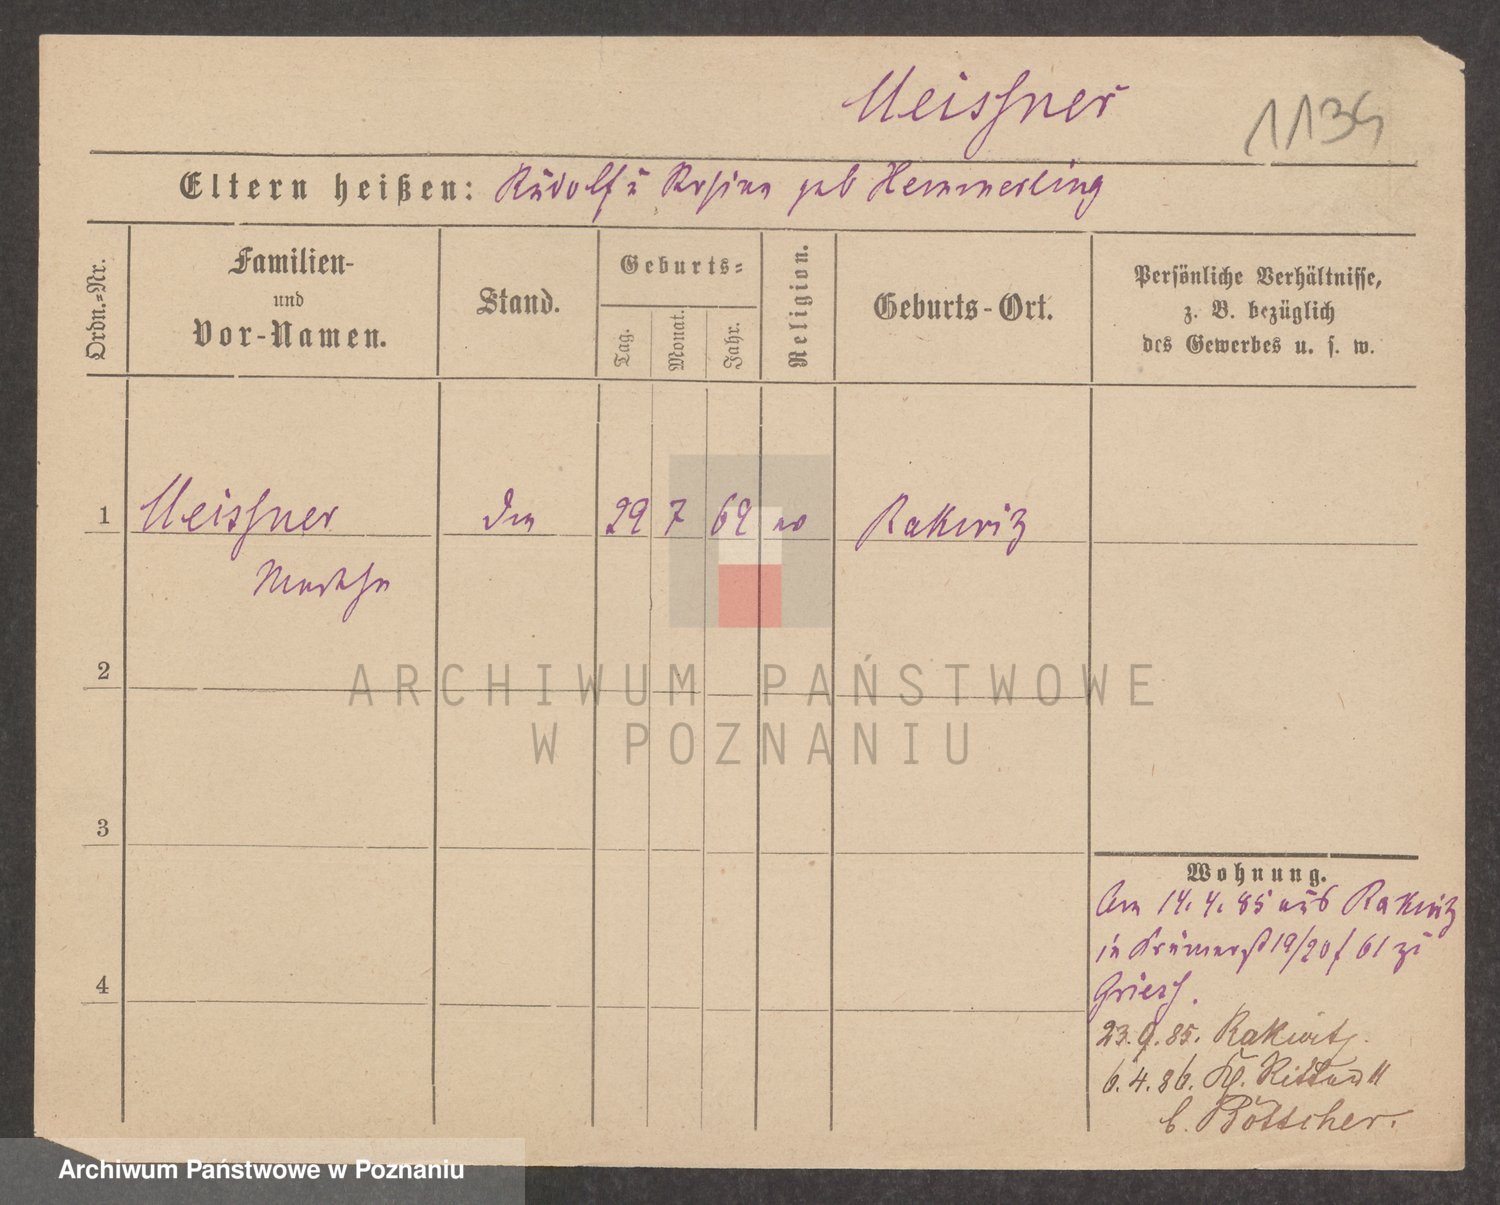 Meissner
1134
Eltern heißen: Rudolf u Rosina geb Hemmerling
Ordn.-Nr.
Familien-
und
Vor-Namen.
Stand.
Geburts-
Tag.
Monat.
Jahr.
Religion.
Geburts-Ort.
Persönliche Verhältnisse,
z. B. bezüglich
des Gewerbes u. s. w.
1 Meissner 29 7 69 Rakwitz
Martha
2
3
4
Wohnung.
Am 14. 4. 85 aus Rakwitz
in Krämerst 19/20 f 61 zu
Griesch.
23. 9. 85. Rakwitz.
6. 4. 86. Kl. Ritterst 11
b. Böttcher.
ARCHIWUM PAŃSTWOWE
W POZNANIU
Archiwum Państwowe w Poznaniu